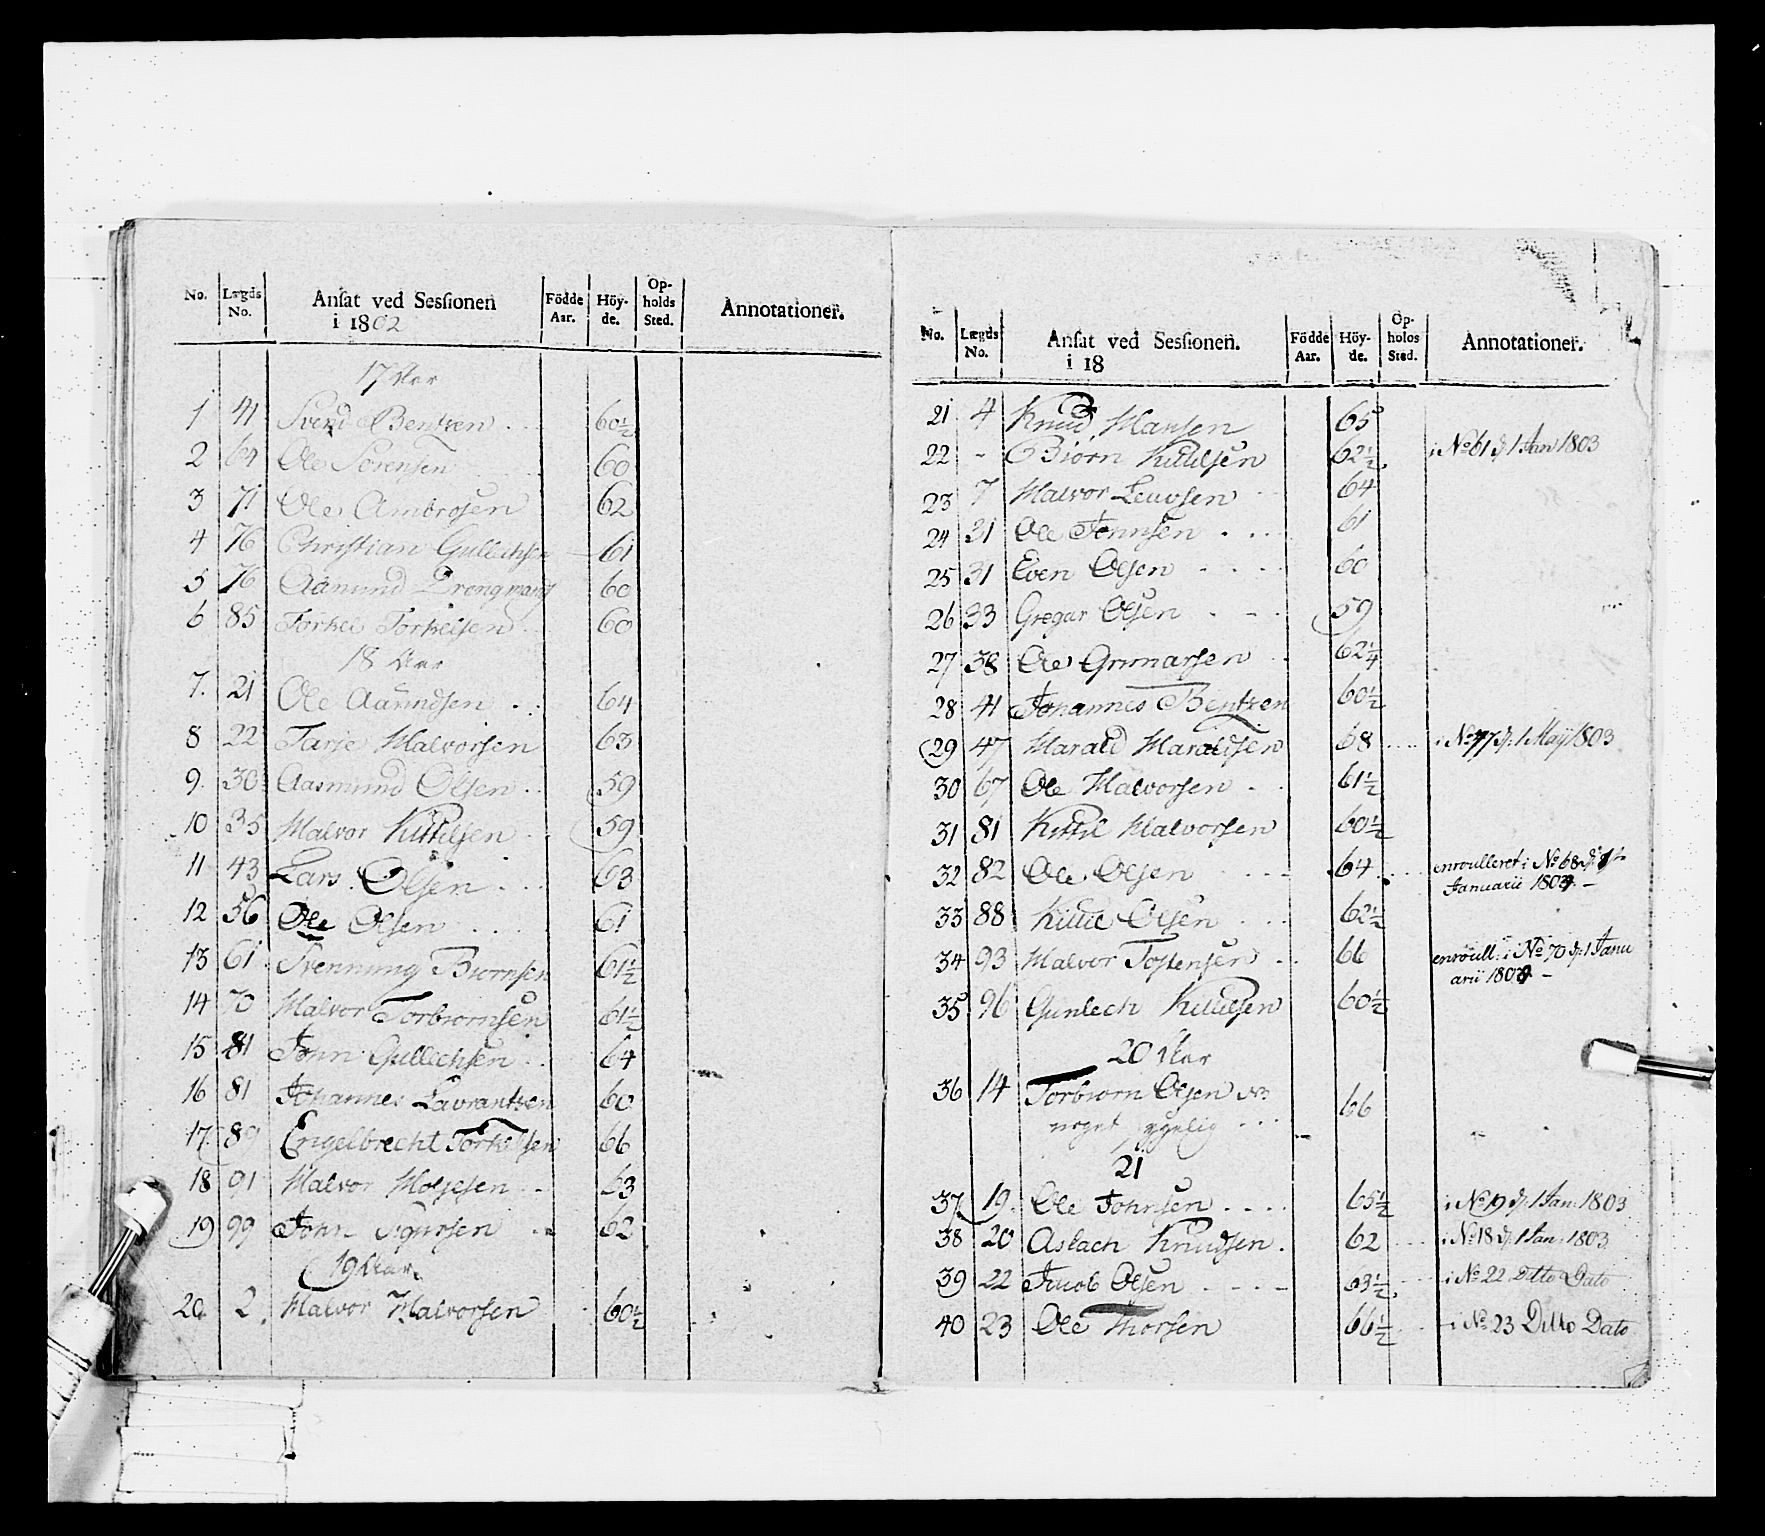 No. Lægds No. Ansat ved Sessionen i 1802 Födde Aar. Höyde. Opholds Sted. Annotationer.
17 Aar
1 41 Svend Bentsen 60½
2 64 Ole Sörensen 60
3 71 Ole Ambrosen 62
4 76 Christian Gullichsen 61
5 76 Aamund 60
6 85 Torkel Torkelsen 60
18 Aar
7. 21 Ole Aamundsen 64
8 22 Tarje Halvorsen 63
9. 30 Aasmund Olsen 59
10 35 Halvor Kittilsen 59
11 43 Lars Olsen 63
12 56 Ole Olsen 61
13 61 Svennung Biornsen 61½
14 70 Halvor Torbiornsen 61½
15 81 John Gullichsen 64
16 81 Johannes Lavrantsen 60
17 89 Engelbrecht Torkelsen 66
18 91 Halvor Holjesen 63
19 99 John Sigursen 62
19 Aar
20 2 Halvor Halvorsen 60½
No. Lægds No. Ansat ved Sessionen. i 18 Födde Aar. Höyde. Opholds Sted. Annotationer.
21 4 Knud Hansen 65
22 - Biörn Kittilsen 62½ i No 61 d: 1 Jan 1803
23 7 Halvor Leuvsen 64
24 31 Ole Johnsen 61
25 31 Even Olsen 60
26 33 Gregar Olsen 59
27 38 Ole Gunnarsen 62¼
28 41 Johannes Bentsen 60½
29 47 Harald Haraldsen 68 i No 77 d: 1 Maij 1803
30 67 Ole Halvorsen 61½
31 81 Kittil Halvorsen 60½
32 82 Ole Olsen 64 enroulleret i No 68 d: 1
Januarii 1803 -
33 88 Kittil Olsen 62½
34 93 Halvor Tostensen 66 enroull: i No 70 d: 1 Janu
arii 1803 -
35 96 Gunlech Kittilsen 60½
20 Aar
36 14 Torbiorn Olsen 66
noget
21
37 19. Ole Johnsen 65½ i No 19 d: 1 Jan: 1803
38 20 Aslach Knudsen. 62 i No 18 d: 1 Jan: 1803
39 22 Jacob Olsen 63½ i No 22 Ditto Dato
40 23 Ole Thorsen 66½ i No 23 Ditto Dato